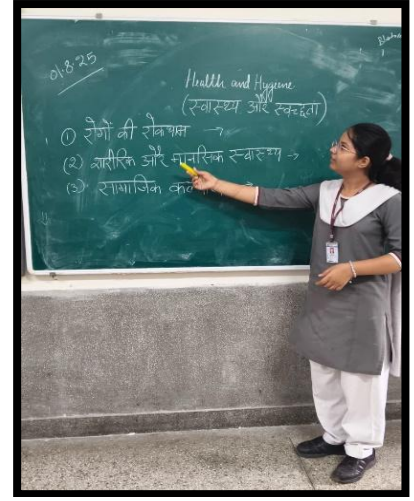 01.8.25
Health and Hygiene
(स्वास्थ्य और स्वच्छता)
① रोगों की रोकथाम →
(2) शारीरिक और मानसिक स्वास्थ्य →
(3) सामाजिक